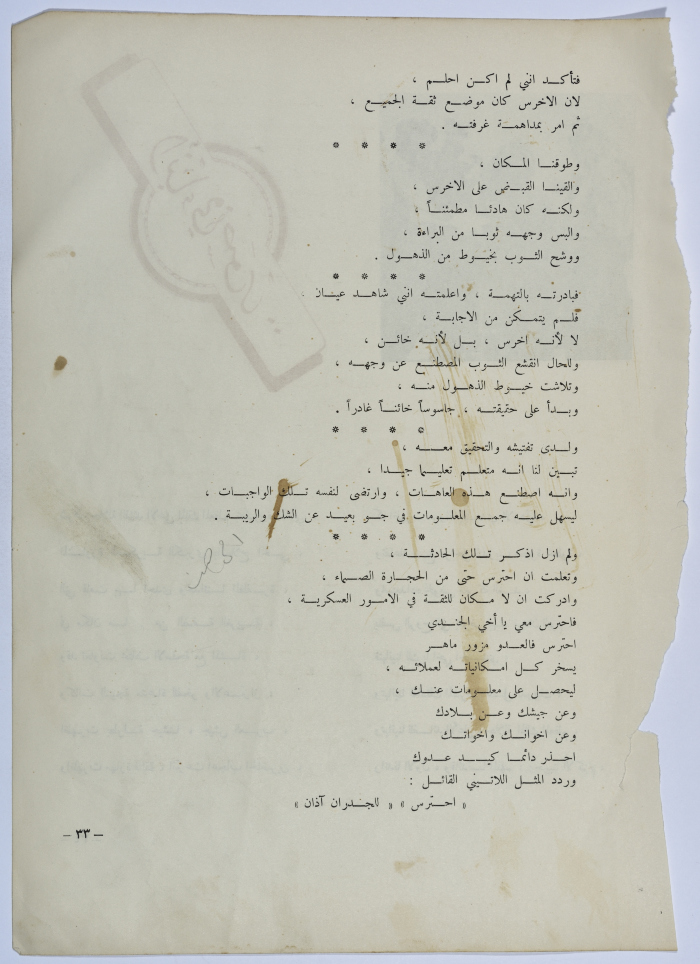 فتأكد انني لم اكن احلم ،
لان الاخرس كان موضع ثقة الجميع ،
ثم امر بمداهمة غرفته .
* * * *
وطوقنا المكان ،
والقينا القبض على الاخرس ،
ولكنه كان هادئا مطمئناً ،
والبس وجهه ثوبا من البراءة ،
ووشح الثوب بخيوط من الذهول .
* * * *
فبادرته بالتهمة ، واعلمته انني شاهد عيان
فلم يتمكن من الاجابة ،
لا لأنه اخرس ، بل لأنه خائن ،
وللحال انقشع الثوب المصطنع عن وجهه ،
وتلاشت خيوط الذهول منه ،
وبدأ على حقيقته ، جاسوساً خائناً غادراً .
* * * *
ولدى تفتيشه والتحقيق معه ،
تبين لنا انه متعلم تعليما جيدا ،
وانه اصطنع هذه العاهات ، وارتضى لنفسه تلك الواجبات ،
ليسهل عليه جمع المعلومات في جو بعيد عن الشك والريبة .
* * * *
ولم ازل اذكر تلك الحادثة ،
وتعلمت ان احترس حتى من الحجارة الصماء ،
وادركت ان لا مكان للثقة في الامور العسكرية ،
فاحترس معي يا أخي الجندي
احترس فالعدو مزور ماهر
يسخر كل امكانياته لعملائه ،
ليحصل على معلومات عنك ،
وعن جيشك وعن بلادك
وعن اخوانك واخواتك
احذر دائما كيد عدوك
وردد المثل اللاتيني القائل :
« احترس » « للجدران آذان »
– ٣٣ –